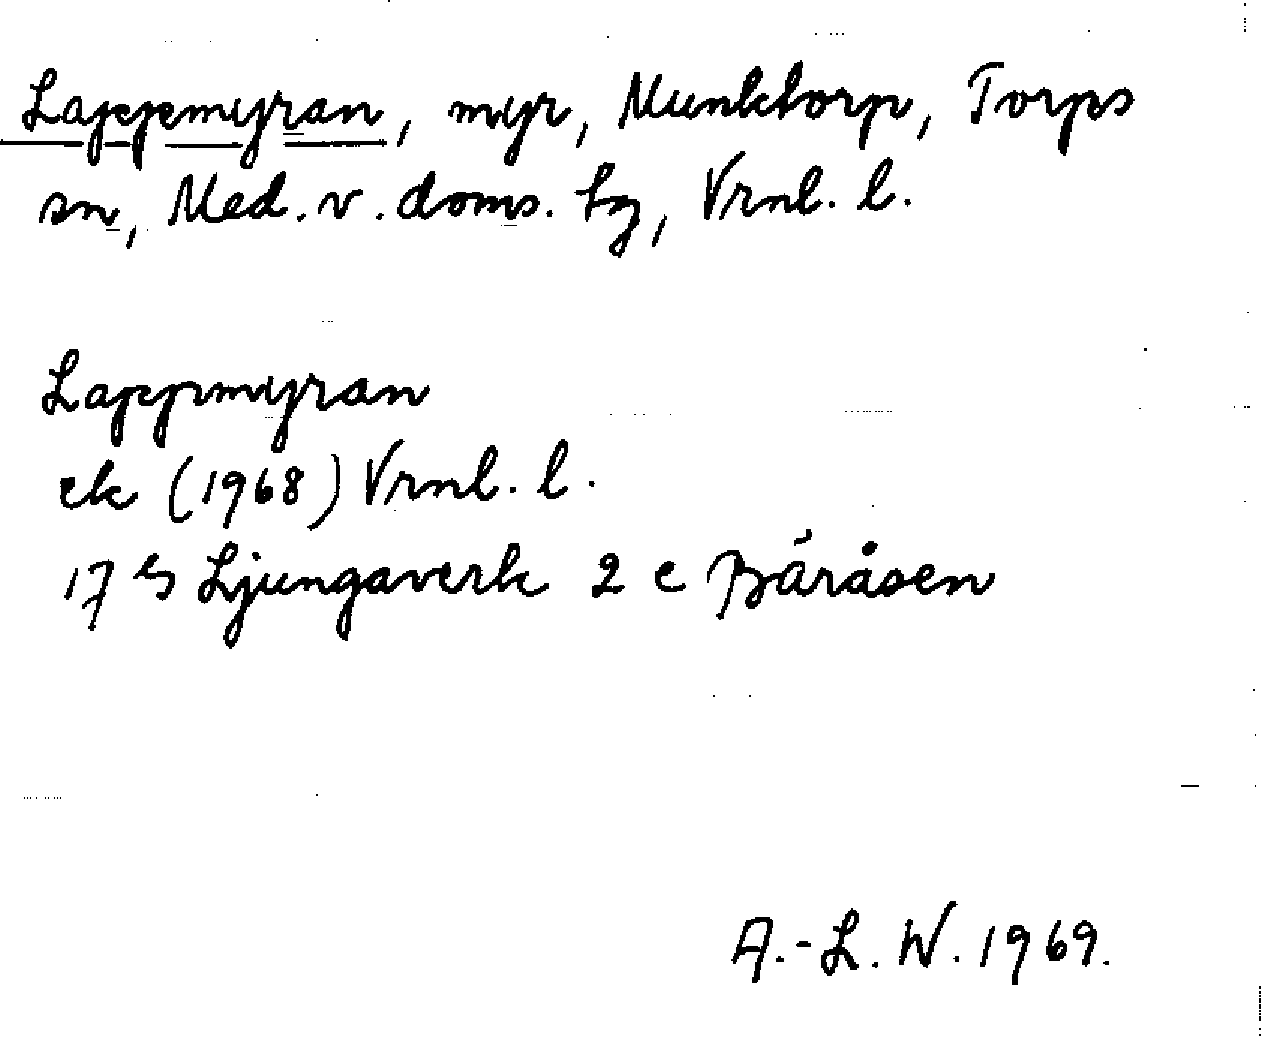 Lappemyran, myr, Munktorp, Torps
sn, Med. v. doms. hg, Vrnl. l.
Lappmyran
ek (1968) Vrnl. l.
17 G Ljungaverk 2 c Båråsen
A.-L. W. 1969.